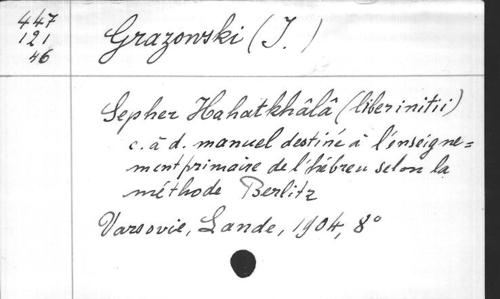 447
121
46
Grazowski (J.)
Sepher Hahatkhâlâ (liber initii)
c. à d. manuel destiné à l'enseigne=
ment primaire de l'hébreu selon la
méthode Berlitz
Varsovie, Lande, 1904, 8°